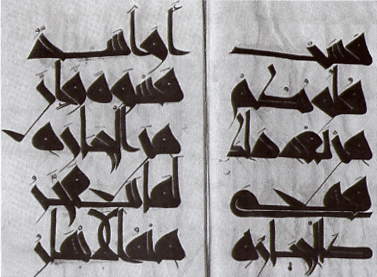 قست
قلوبكم
من بعد ذلك
فهى
كالحجارة
أو أشد
قسوة وإن
من الحجارة
لما يتفجر
منه الأنهار